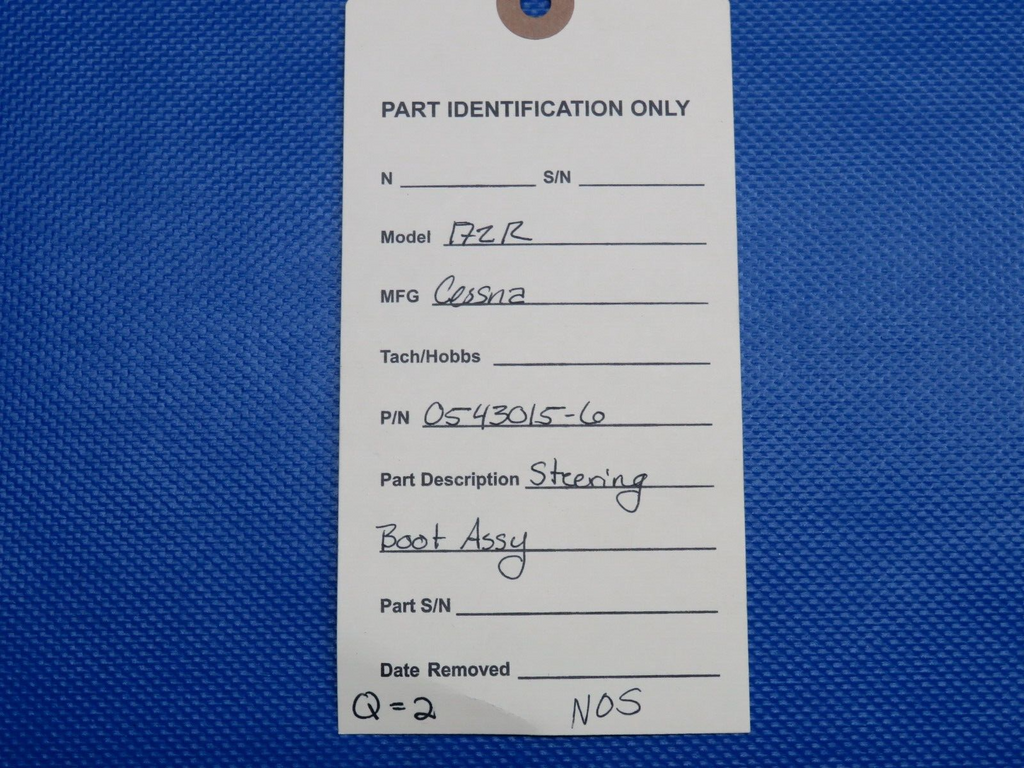 PART IDENTIFICATION ONLY
N S/N
Model 172R
MFG Cessna
Tach/Hobbs
P/N 0543015-6
Part Description Steering
Boot Assy
Part S/N
Date Removed
Q=2 NOS